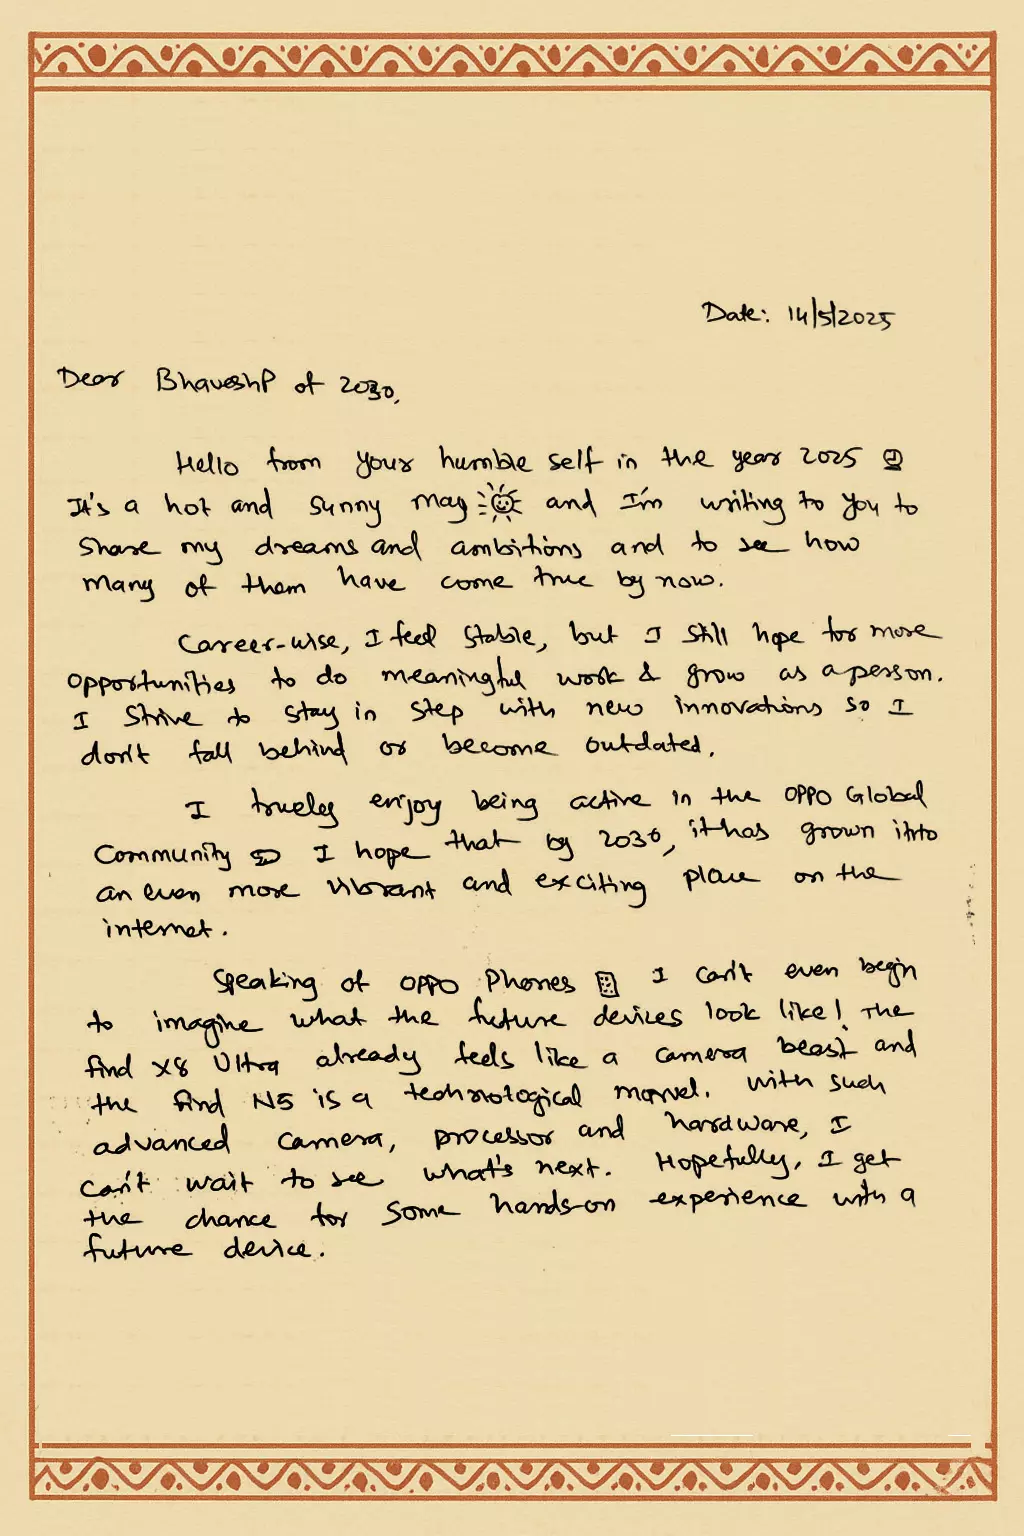 Date: 14/5/2025
Dear BhaveshP of 2030,
Hello from your humble self in the year 2025
It's a hot and sunny may and I'm writing to you to
share my dreams and ambitions and to see how
many of them have come true by now.
Career-wise, I feel stable, but I still hope for more
opportunities to do meaningful work & grow as a person.
I strive to stay in step with new innovations so I
don't fall behind or become outdated.
I truely enjoy being active in the OPPO Global
Community I hope that by 2030, it has grown into
an even more vibrant and exciting place on the
internet.
Speaking of OPPO Phones I can't even begin
to imagine what the future devices look like! The
find X8 Ultra already feels like a camera beast and
the find N5 is a technological marvel. with such
advanced camera, processor and hardware, I
can't wait to see what's next. Hopefully, I get
the chance for some hands-on experience with a
future device.